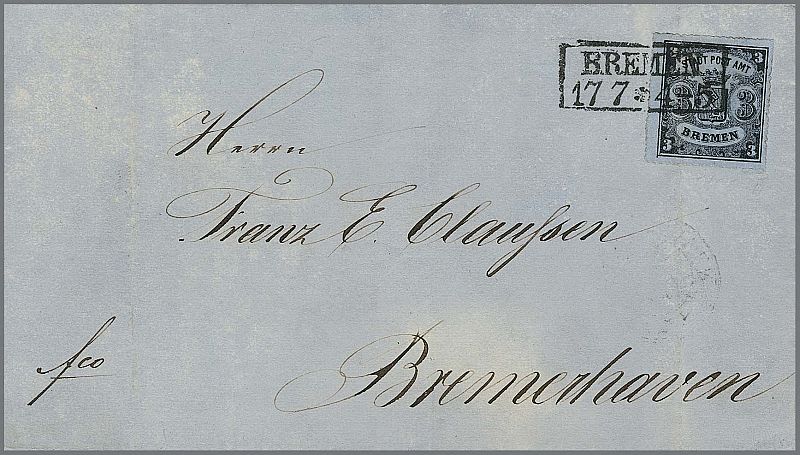 BREMEN
17 7
3 3
STADT POST AMT
3 3
BREMEN
3 3
Herrn
Franz E. Claussen
fco
Bremerhaven